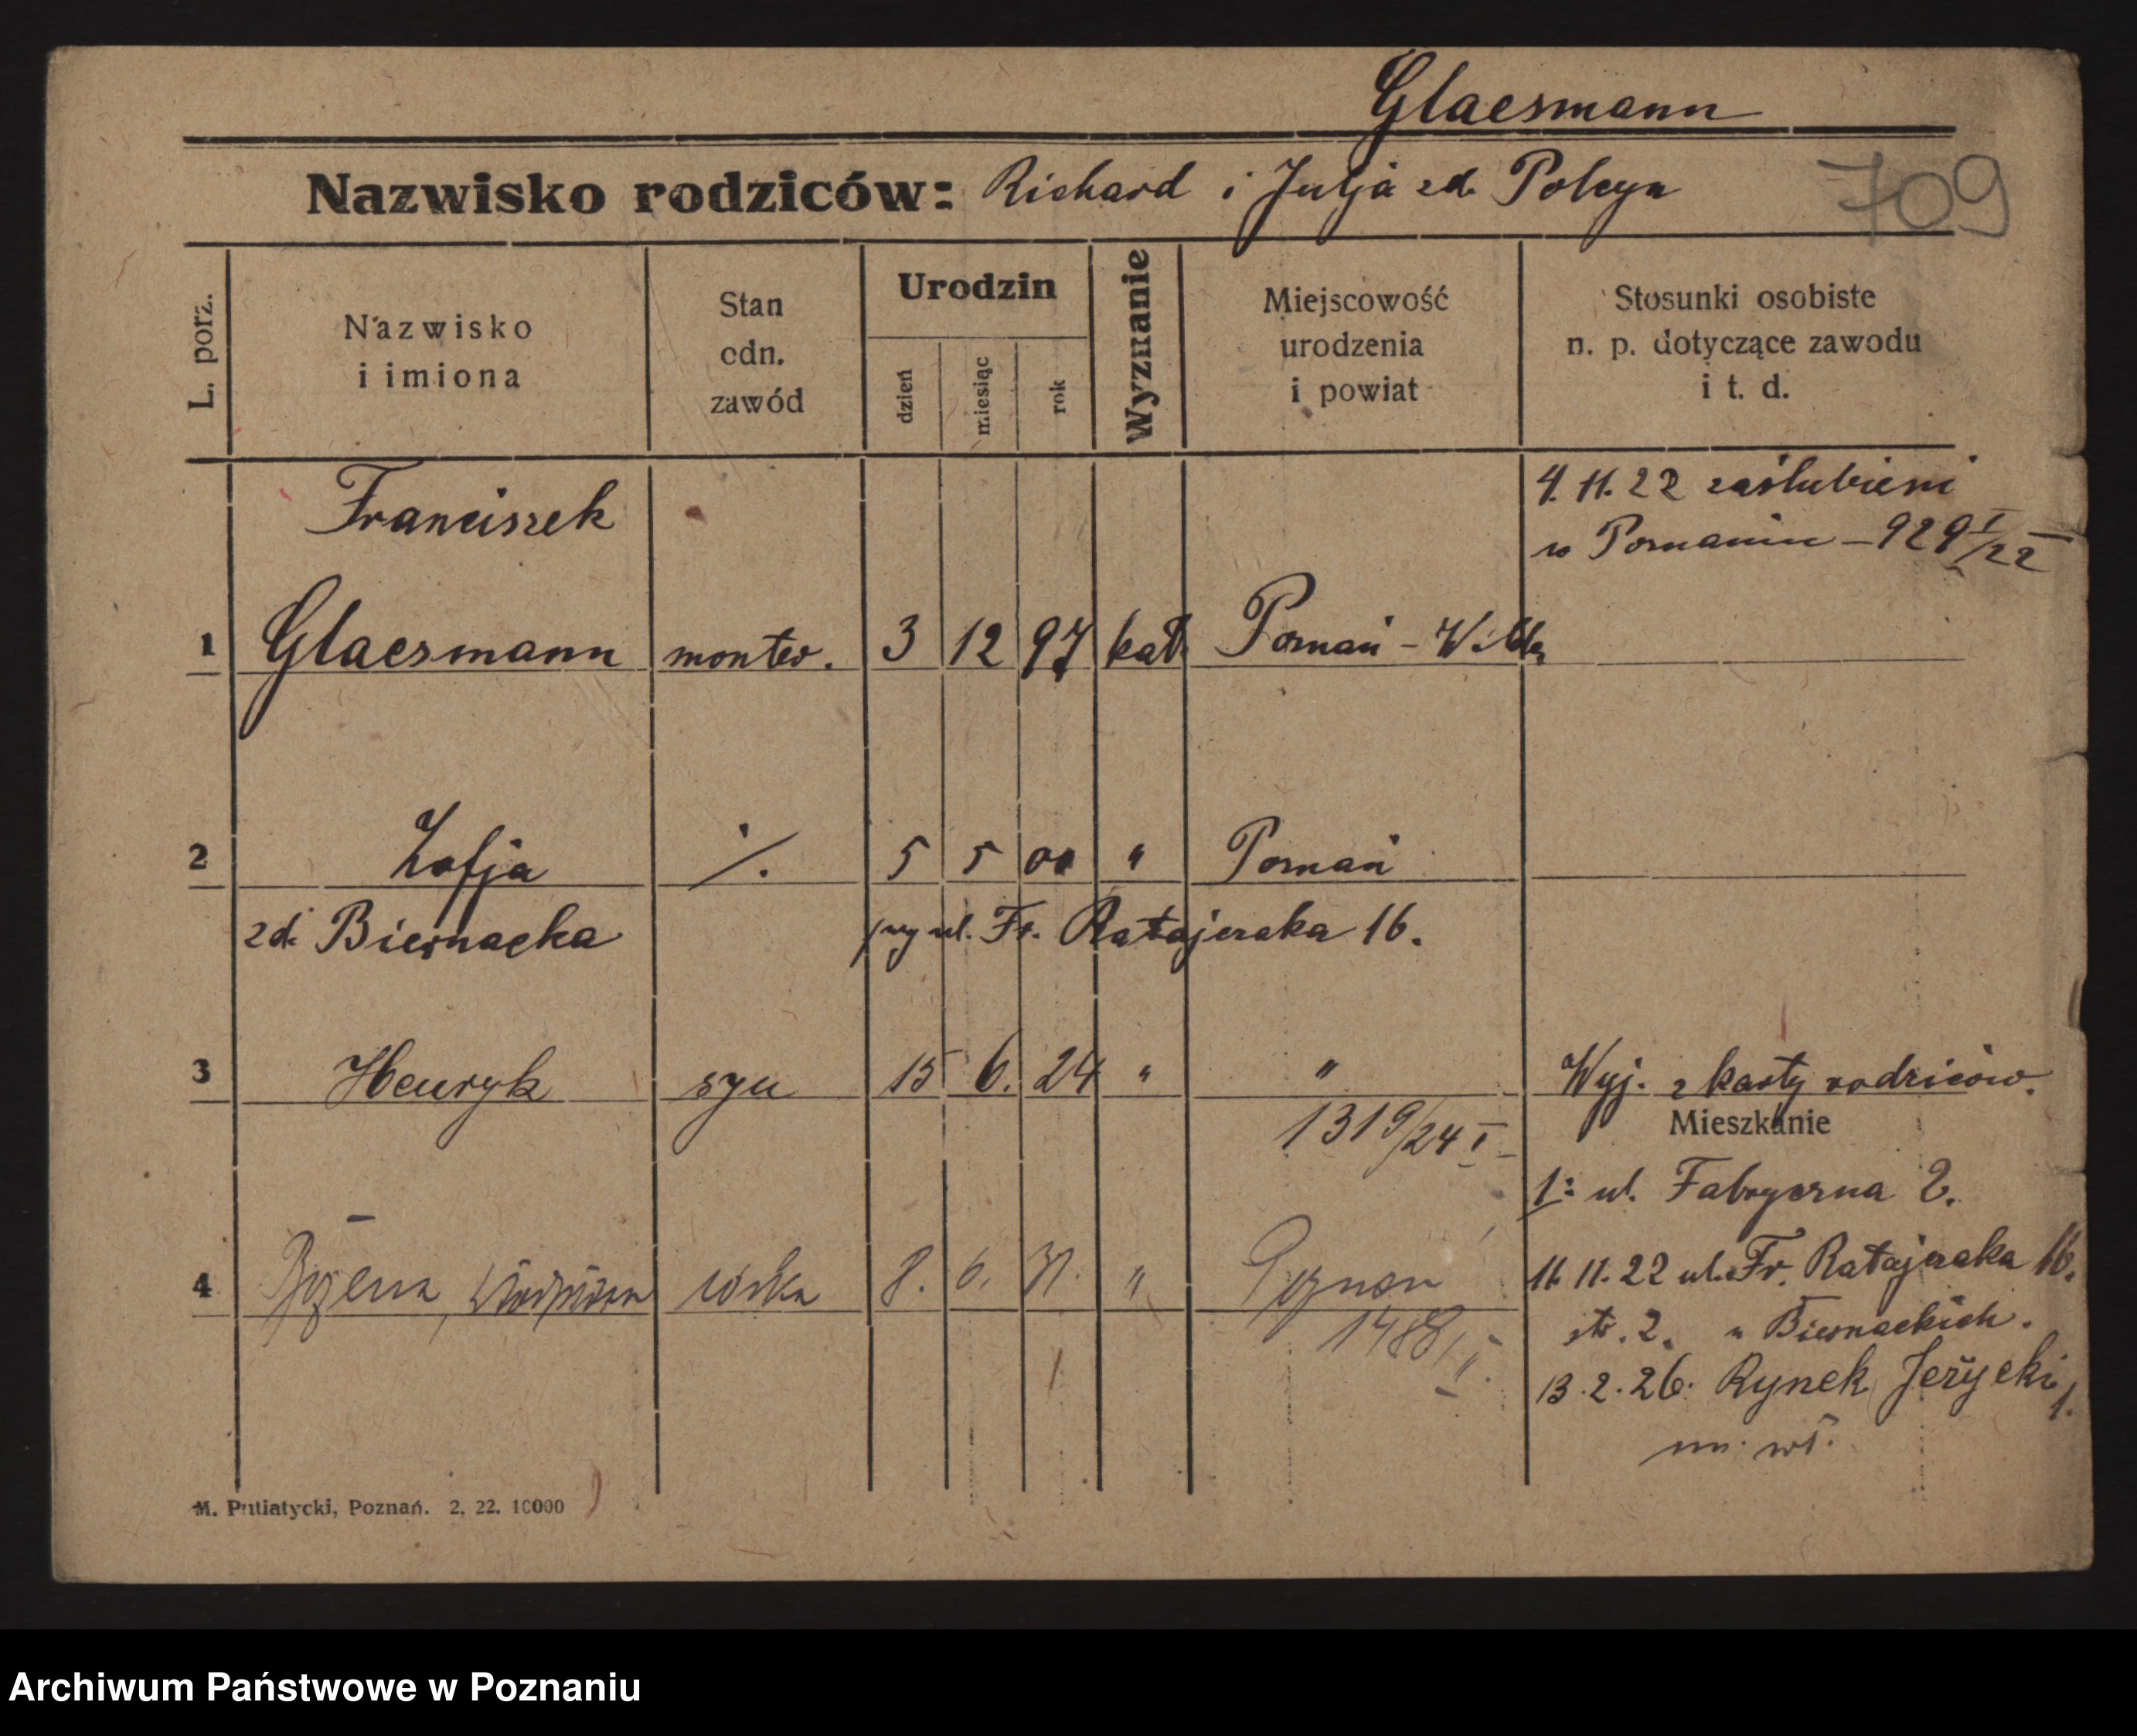 Glaesmann
Nazwisko rodziców: Richard i Julja zd. Polcyn
709
L. porz.
Nazwisko
i imiona
Stan
odn.
zawód
Urodzin
dzień
miesiąc
rok
Wyznanie
Miejscowość
urodzenia
i powiat
Stosunki osobiste
n. p. dotyczące zawodu
i t. d.
4. 11. 22 zaślubieni
w Poznaniu – 929 I/22
Franciszek
1 Glaesmann monter. 3 12 97 kat. Poznań – Wilda
2 Zofja ./. 5 5 00 " Poznań
zd. Biernacka przy ul. Fr. Ratajczaka 16.
3 Henryk syn 15 6. 24 " " Wyj. z karty rodziców.
1319/24 I
Mieszkanie
1: ul. Fabryczna 2.
4 Bożena, córka 8. 6. 31. " Poznań
1488/
11. 11. 22 ul. Fr. Ratajczaka 16.
str. 2. u Biernackich.
13. 2. 26. Rynek Jeżycki 1.
M. Putiatycki, Poznań. 2. 22. 10000
Archiwum Państwowe w Poznaniu